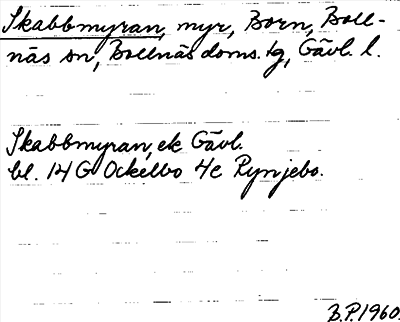 Skabbmyran, myr, Born, Boll-
näs sn, Bollnäs doms. lg, Gävl. l.
Skabbmyran, ek Gävl.
bl. 14 G Ockelbo 4c Rynjebo.
B.P. 1960.